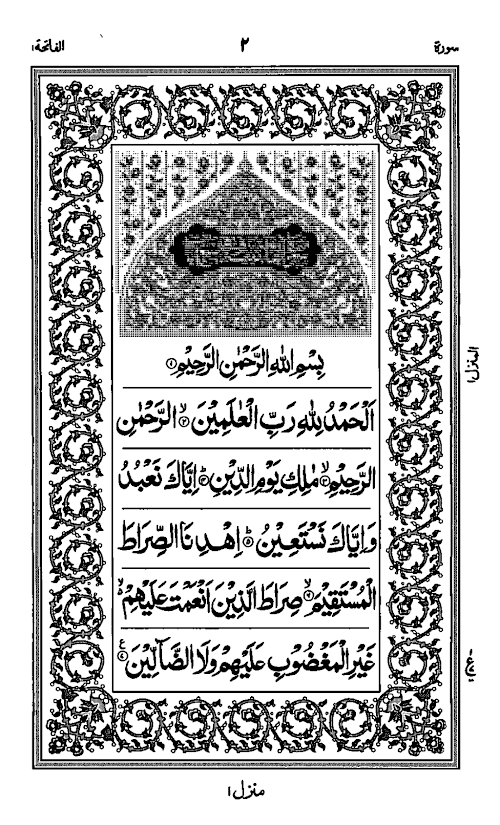 سورة ٢ الفاتحة١
بِسْمِ اللهِ الرَّحْمٰنِ الرَّحِيْمِ ۝١
اَلْحَمْدُ لِلّٰهِ رَبِّ الْعٰلَمِيْنَ ۝٢ۙ الرَّحْمٰنِ
الرَّحِيْمِ ۝٣ۙ مٰلِكِ يَوْمِ الدِّيْنِ ۝٤ؕ اِيَّاكَ نَعْبُدُ
وَاِيَّاكَ نَسْتَعِيْنُ ۝٥ؕ اِهْدِنَا الصِّرَاطَ
الْمُسْتَقِيْمَ ۝٦ۙ صِرَاطَ الَّذِيْنَ اَنْعَمْتَ عَلَيْهِمْ ۙ
غَيْرِ الْمَغْضُوْبِ عَلَيْهِمْ وَلَا الضَّآلِّيْنَ ۝٧
المنزل١
منزل١